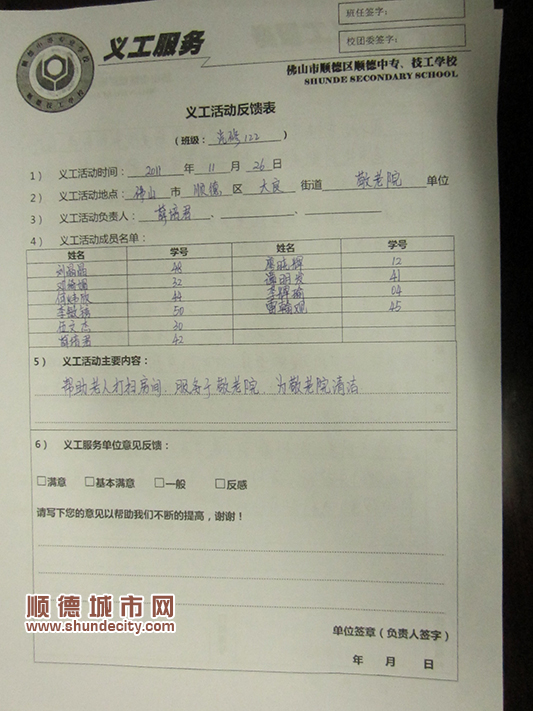 班任签字：
校团委签字：
义工服务
佛山市顺德区顺德中专、技工学校
SHUNDE SECONDARY SCHOOL
顺德技工学校
义工活动反馈表
（班级： 122 ）
1） 义工活动时间： 2011 年 11 月 26 日
2） 义工活动地点： 佛山 市 顺德 区 大良 街道 敬老院 单位
3） 义工活动负责人： 薛培君 、 、
4） 义工活动成员名单：
姓名 学号 姓名 学号
刘晶晶 48 廖晓辉 12
邓 32 41
何 44 李 04
李敏 50 45
任文杰 30
薛培君 42
5） 义工活动主要内容：
帮助老人打扫房间、服务于敬老院、为敬老院清洁
6） 义工服务单位意见反馈：
□满意 □基本满意 □一般 □反感
请写下您的意见以帮助我们不断的提高，谢谢！
顺德城市网
www.shundecity.com
单位签章（负责人签字）
年 月 日